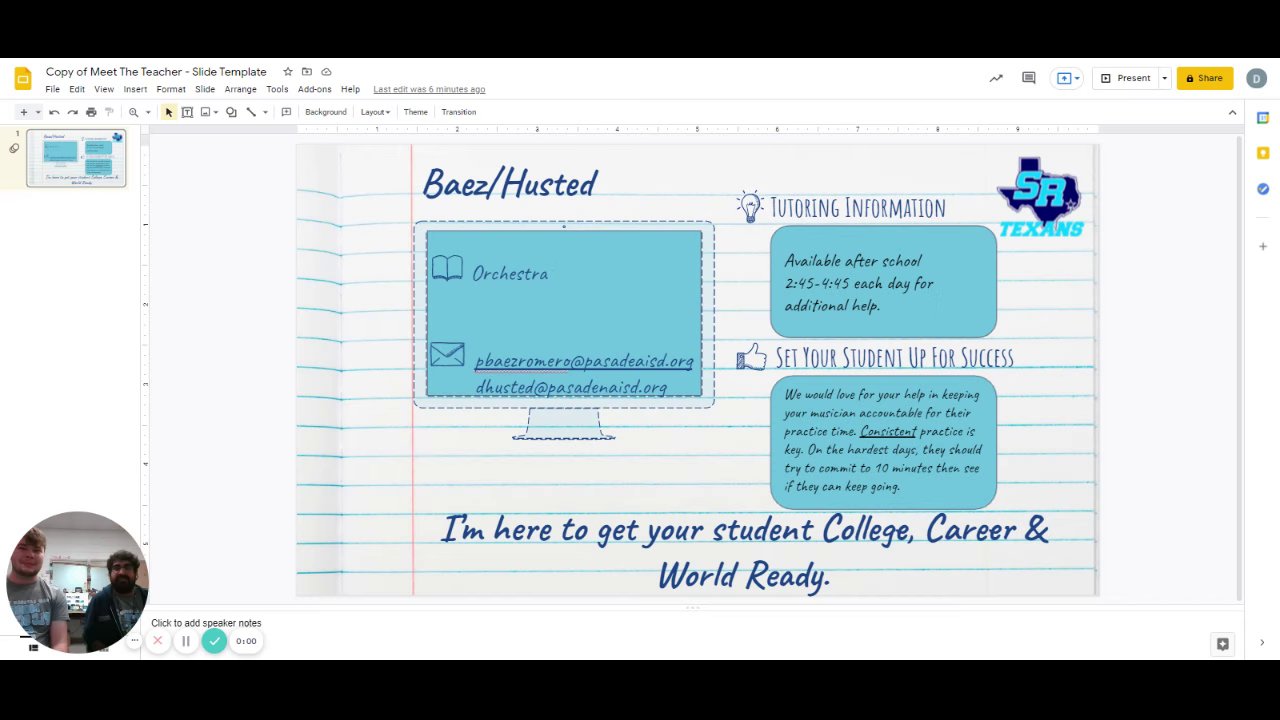 Copy of Meet The Teacher - Slide Template
File Edit View Insert Format Slide Arrange Tools Add-ons Help Last edit was 6 minutes ago
Present
Share
D
Background Layout Theme Transition
1
1 2 3 4 5 6 7 8 9
1
2
3
4
5
Baez/Husted
Orchestra
pbaezromero@pasadeaisd.org
dhusted@pasadenaisd.org
Tutoring Information
SR
TEXANS
Available after school
2:45-4:45 each day for
additional help.
Set Your Student Up For Success
We would love for your help in keeping
your musician accountable for their
practice time. Consistent practice is
key. On the hardest days, they should
try to commit to 10 minutes then see
if they can keep going.
I'm here to get your student College, Career &
World Ready.
Click to add speaker notes
0:00